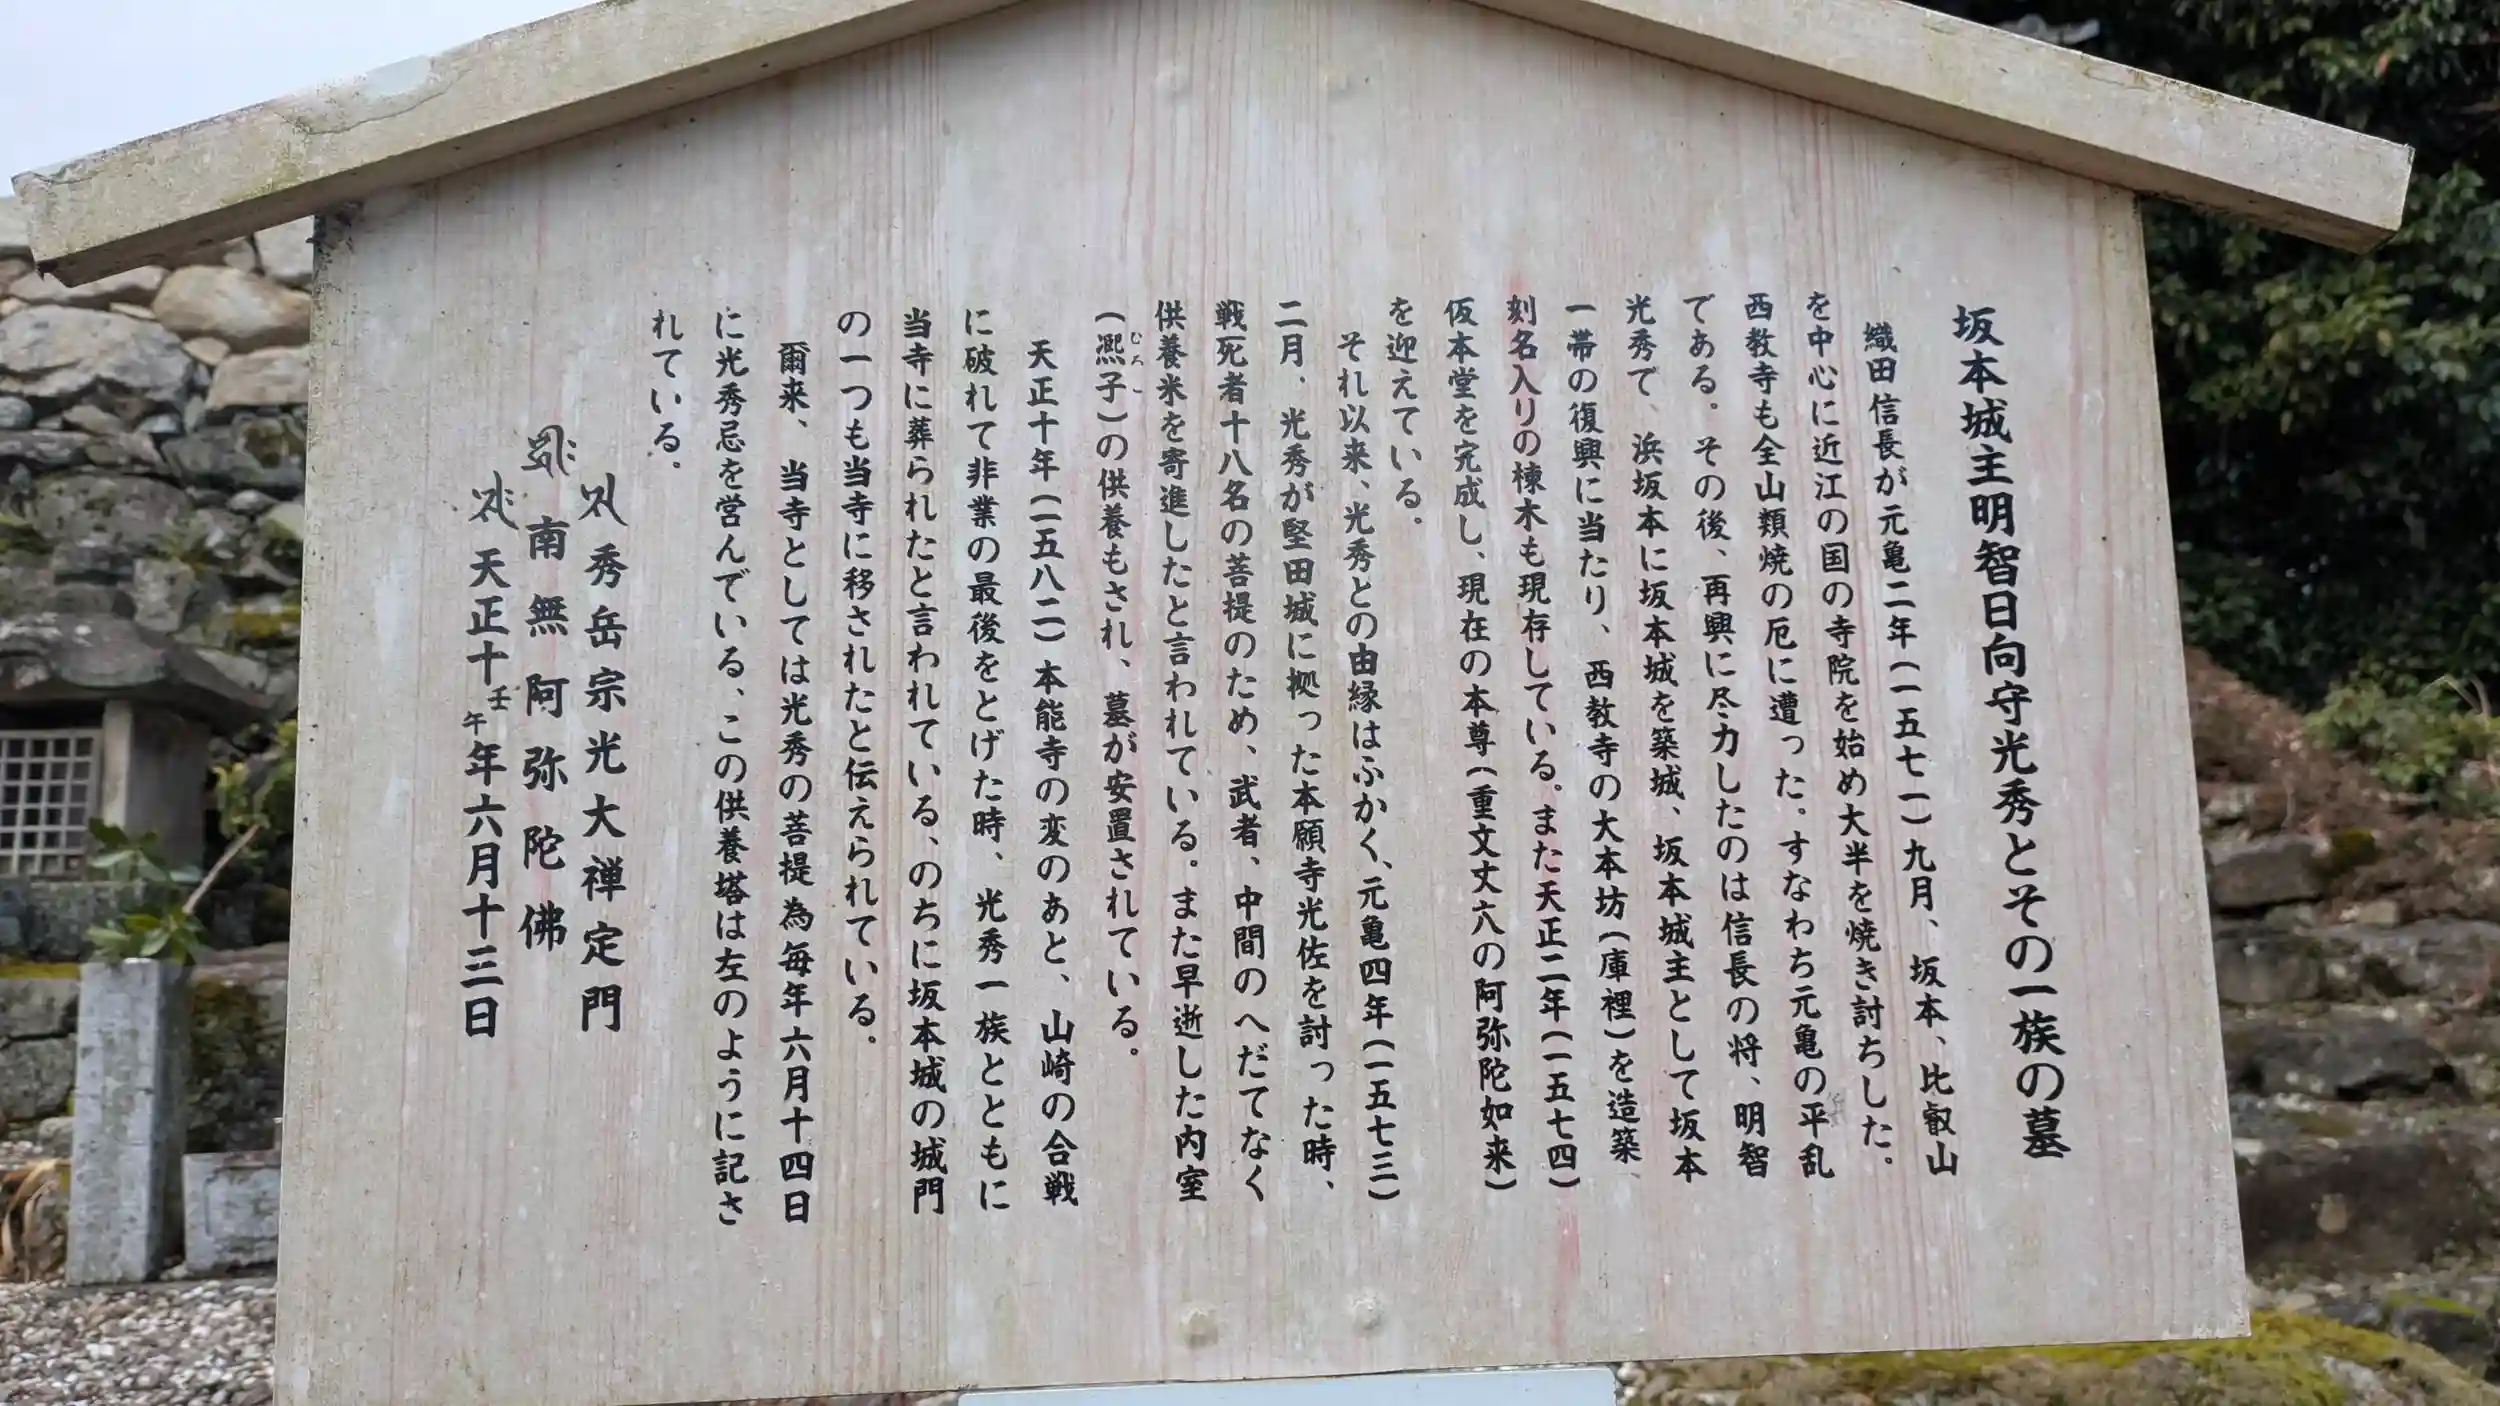 坂本城主明智日向守光秀とその一族の墓
織田信長が元亀二年(一五七一)九月、坂本、比叡山
を中心に近江の国の寺院を始め大半を焼き討ちした。
西教寺も全山類焼の厄に遭った。すなわち元亀の平乱
である。その後、再興に尽力したのは信長の将、明智
光秀で、浜坂本に坂本城を築城、坂本城主として坂本
一帯の復興に当たり、西教寺の大本坊(庫裡)を造築、
刻名入りの棟木も現存している。また天正二年(一五七四)
仮本堂を完成し、現在の本尊(重文丈六の阿弥陀如来)
を迎えている。
それ以来、光秀との由縁はふかく、元亀四年(一五七三)
二月、光秀が堅田城に拠った本願寺光佐を討った時、
戦死者十八名の菩提のため、武者、中間のへだてなく
供養米を寄進したと言われている。また早逝した内室
(凞子)の供養もされ、墓が安置されている。
むろこ
天正十年(一五八二)本能寺の変のあと、山崎の合戦
に破れて非業の最後をとげた時、光秀一族とともに
当寺に葬られたと言われている、のちに坂本城の城門
の一つも当寺に移されたと伝えられている。
爾来、当寺としては光秀の菩提為毎年六月十四日
に光秀忌を営んでいる、この供養塔は左のように記さ
れている。
秀岳宗光大禅定門
南無阿弥陀佛
天正十壬午年六月十三日